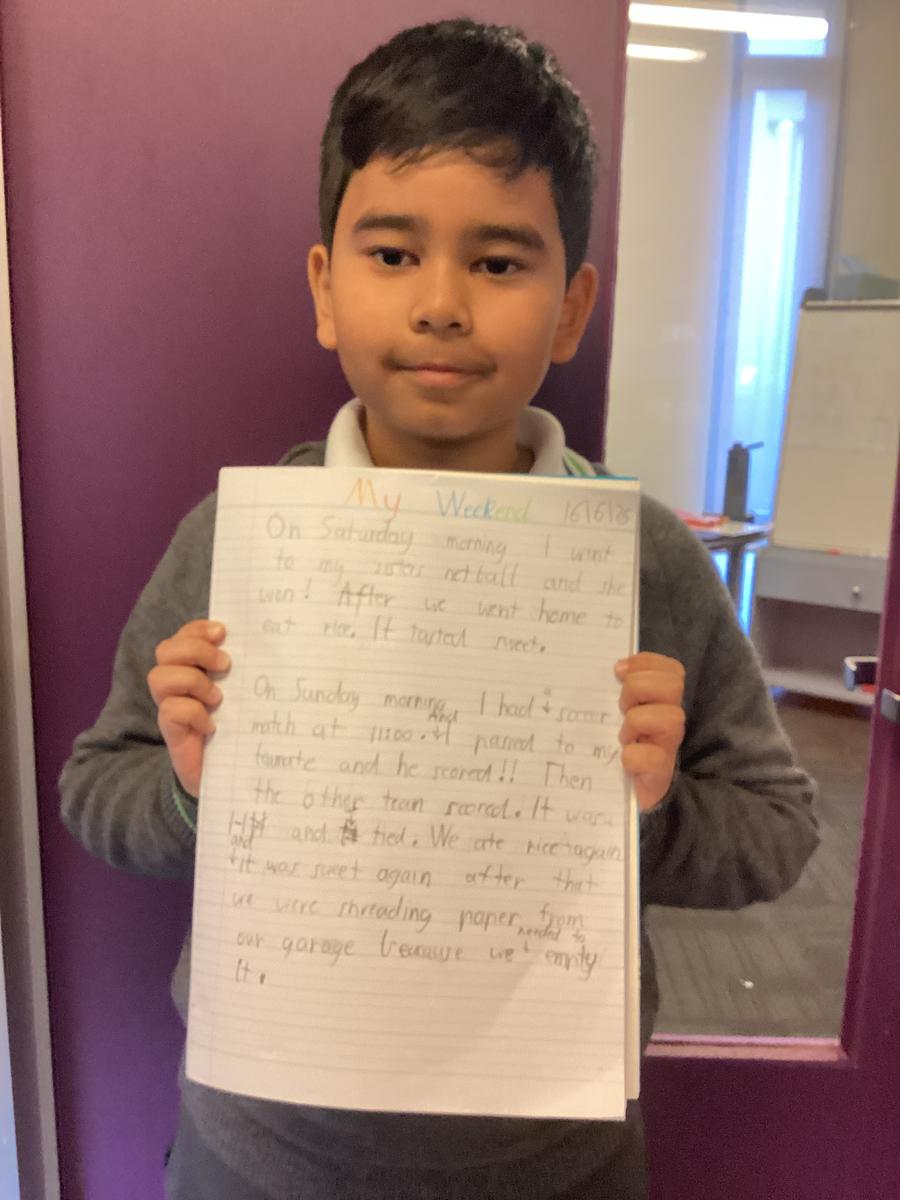 My Weekend 16/6/25
On Saturday morning I went
to my sisters netball and she
won! After we went home to
eat rice. It tasted sweet.
On Sunday morning I had a soccer
match at 11:00. And I passed to my
teamate and he scored!! Then
the other team scored. It was
1-1 and tied. We ate rice again
and it was sweet again after that
we were shreading paper from
our garage because we needed to empty
it.